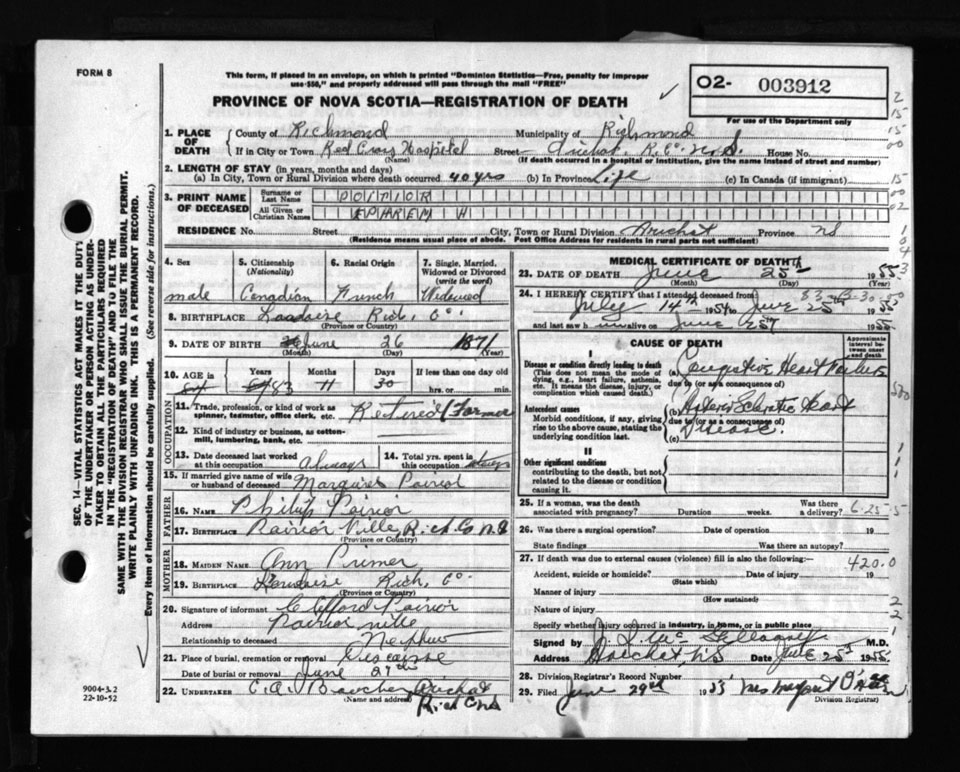 FORM 8
This form, if placed in an envelope, on which is printed "Dominion Statistics—Free, penalty for improper
use $50," and properly addressed will pass through the mail "FREE"
O2- 003912
PROVINCE OF NOVA SCOTIA—REGISTRATION OF DEATH
For use of the Department only
1. PLACE OF DEATH
County of Richmond Municipality of Richmond
If in City or Town Red Cross Hospital Street Arichat, R. Co. N.S. House No.
(Name) (If death occurred in a hospital or institution, give the name instead of street and number)
2. LENGTH OF STAY (in years, months and days)
(a) In City, Town or Rural Division where death occurred 40 yrs (b) In Province Life (c) In Canada (if immigrant)
3. PRINT NAME OF DECEASED
Surname or Last Name POIRIOR
All Given or Christian Names EPHREM H
RESIDENCE No. Street City, Town or Rural Division Arichat Province NS
(Residence means usual place of abode. Post Office Address for residents in rural parts not sufficient)
4. Sex
male
5. Citizenship
(Nationality)
Canadian
6. Racial Origin
French
7. Single, Married,
Widowed or Divorced
(write the word)
Widowed
8. BIRTHPLACE Rich. Co.
(Province or Country)
9. DATE OF BIRTH June 26 1871
(Month) (Day) (Year)
10. AGE in Years Months Days If less than one day
83 11 30 hrs. or min.
OCCUPATION
11. Trade, profession, or kind of work as
spinner, teamster, office clerk, etc. Retired Farmer
12. Kind of industry or business, as cotton-
mill, lumbering, bank, etc.
13. Date deceased last worked
at this occupation always
14. Total yrs. spent in
this occupation always
15. If married give name of wife
or husband of deceased Margaret Poirior
FATHER
16. Name Philip Poirior
17. Birthplace Poirior Ville, Rich. Co N.S
(Province or Country)
MOTHER
18. MAIDEN NAME Ann
19. BIRTHPLACE Rich. Co.
(Province or Country)
20. Signature of informant Clifford Poirior
Address Poirior ville
Relationship to deceased Nephew
21. Place of burial, cremation or removal
Date of burial or removal June
22. UNDERTAKER Arichat
(Name and address) Rich Co NS
MEDICAL CERTIFICATE OF DEATH
23. DATE OF DEATH June 25th 1955
(Month) (Day) (Year)
24. I HEREBY CERTIFY that I attended deceased from
14th 1954 to June 25 1955
and last saw h alive on June 25 1955
CAUSE OF DEATH
Approximate
interval between
onset
and death
I
Disease or condition directly leading to death
(This does not mean the mode of
dying, e.g., heart failure, asthenia,
etc. It means the disease, injury, or
complication which caused death.)
(a) Congestive Heart Failure
due to (or as a consequence of)
Antecedent causes
Morbid conditions, if any, giving
rise to the above cause, stating the
underlying condition last.
(b) Arterio Sclerotic Heart
due to (or as a consequence of)
Disease.
(c)
II
Other significant conditions
contributing to the death, but not
related to the disease or condition
causing it.
25. If a woman, was the death
associated with pregnancy? Duration weeks. Was there
a delivery? 6-25-5
26. Was there a surgical operation? Date of operation 19
State findings Was there an autopsy?
27. If death was due to external causes (violence) fill in also the following:
420.0
Accident, suicide or homicide? Date of injury 19
(State which)
Manner of injury
(How sustained)
Nature of injury
Specify whether injury occurred in industry, in home, or in public place
Signed by M.D.
Address Arichat, NS Date June 25 1955
28. Division Registrar's Record Number
29. Filed June 29th 1955
Division Registrar
9004-3.2
22-10-52
SEC. 14—VITAL STATISTICS ACT MAKES IT THE DUTY
OF THE UNDERTAKER OR PERSON ACTING AS UNDER-
TAKER TO OBTAIN ALL THE PARTICULARS REQUIRED
IN THE "REGISTRATION OF DEATH" AND TO FILE THE
SAME WITH THE DIVISION REGISTRAR WHO SHALL ISSUE THE BURIAL PERMIT.
WRITE PLAINLY WITH UNFADING INK. THIS IS A PERMANENT RECORD.
Every item of information should be carefully supplied. (See reverse side for instructions.)